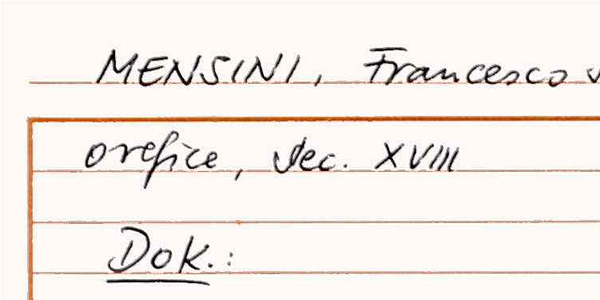 MENSINI, Francesco
orefice, Sec. XVIII
Dok.: